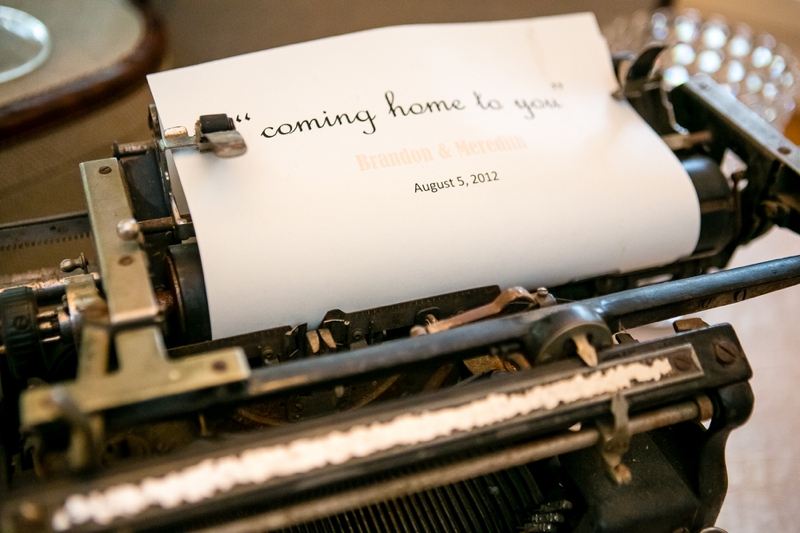 “coming home to you”
Brandon & Meredith
August 5, 2012